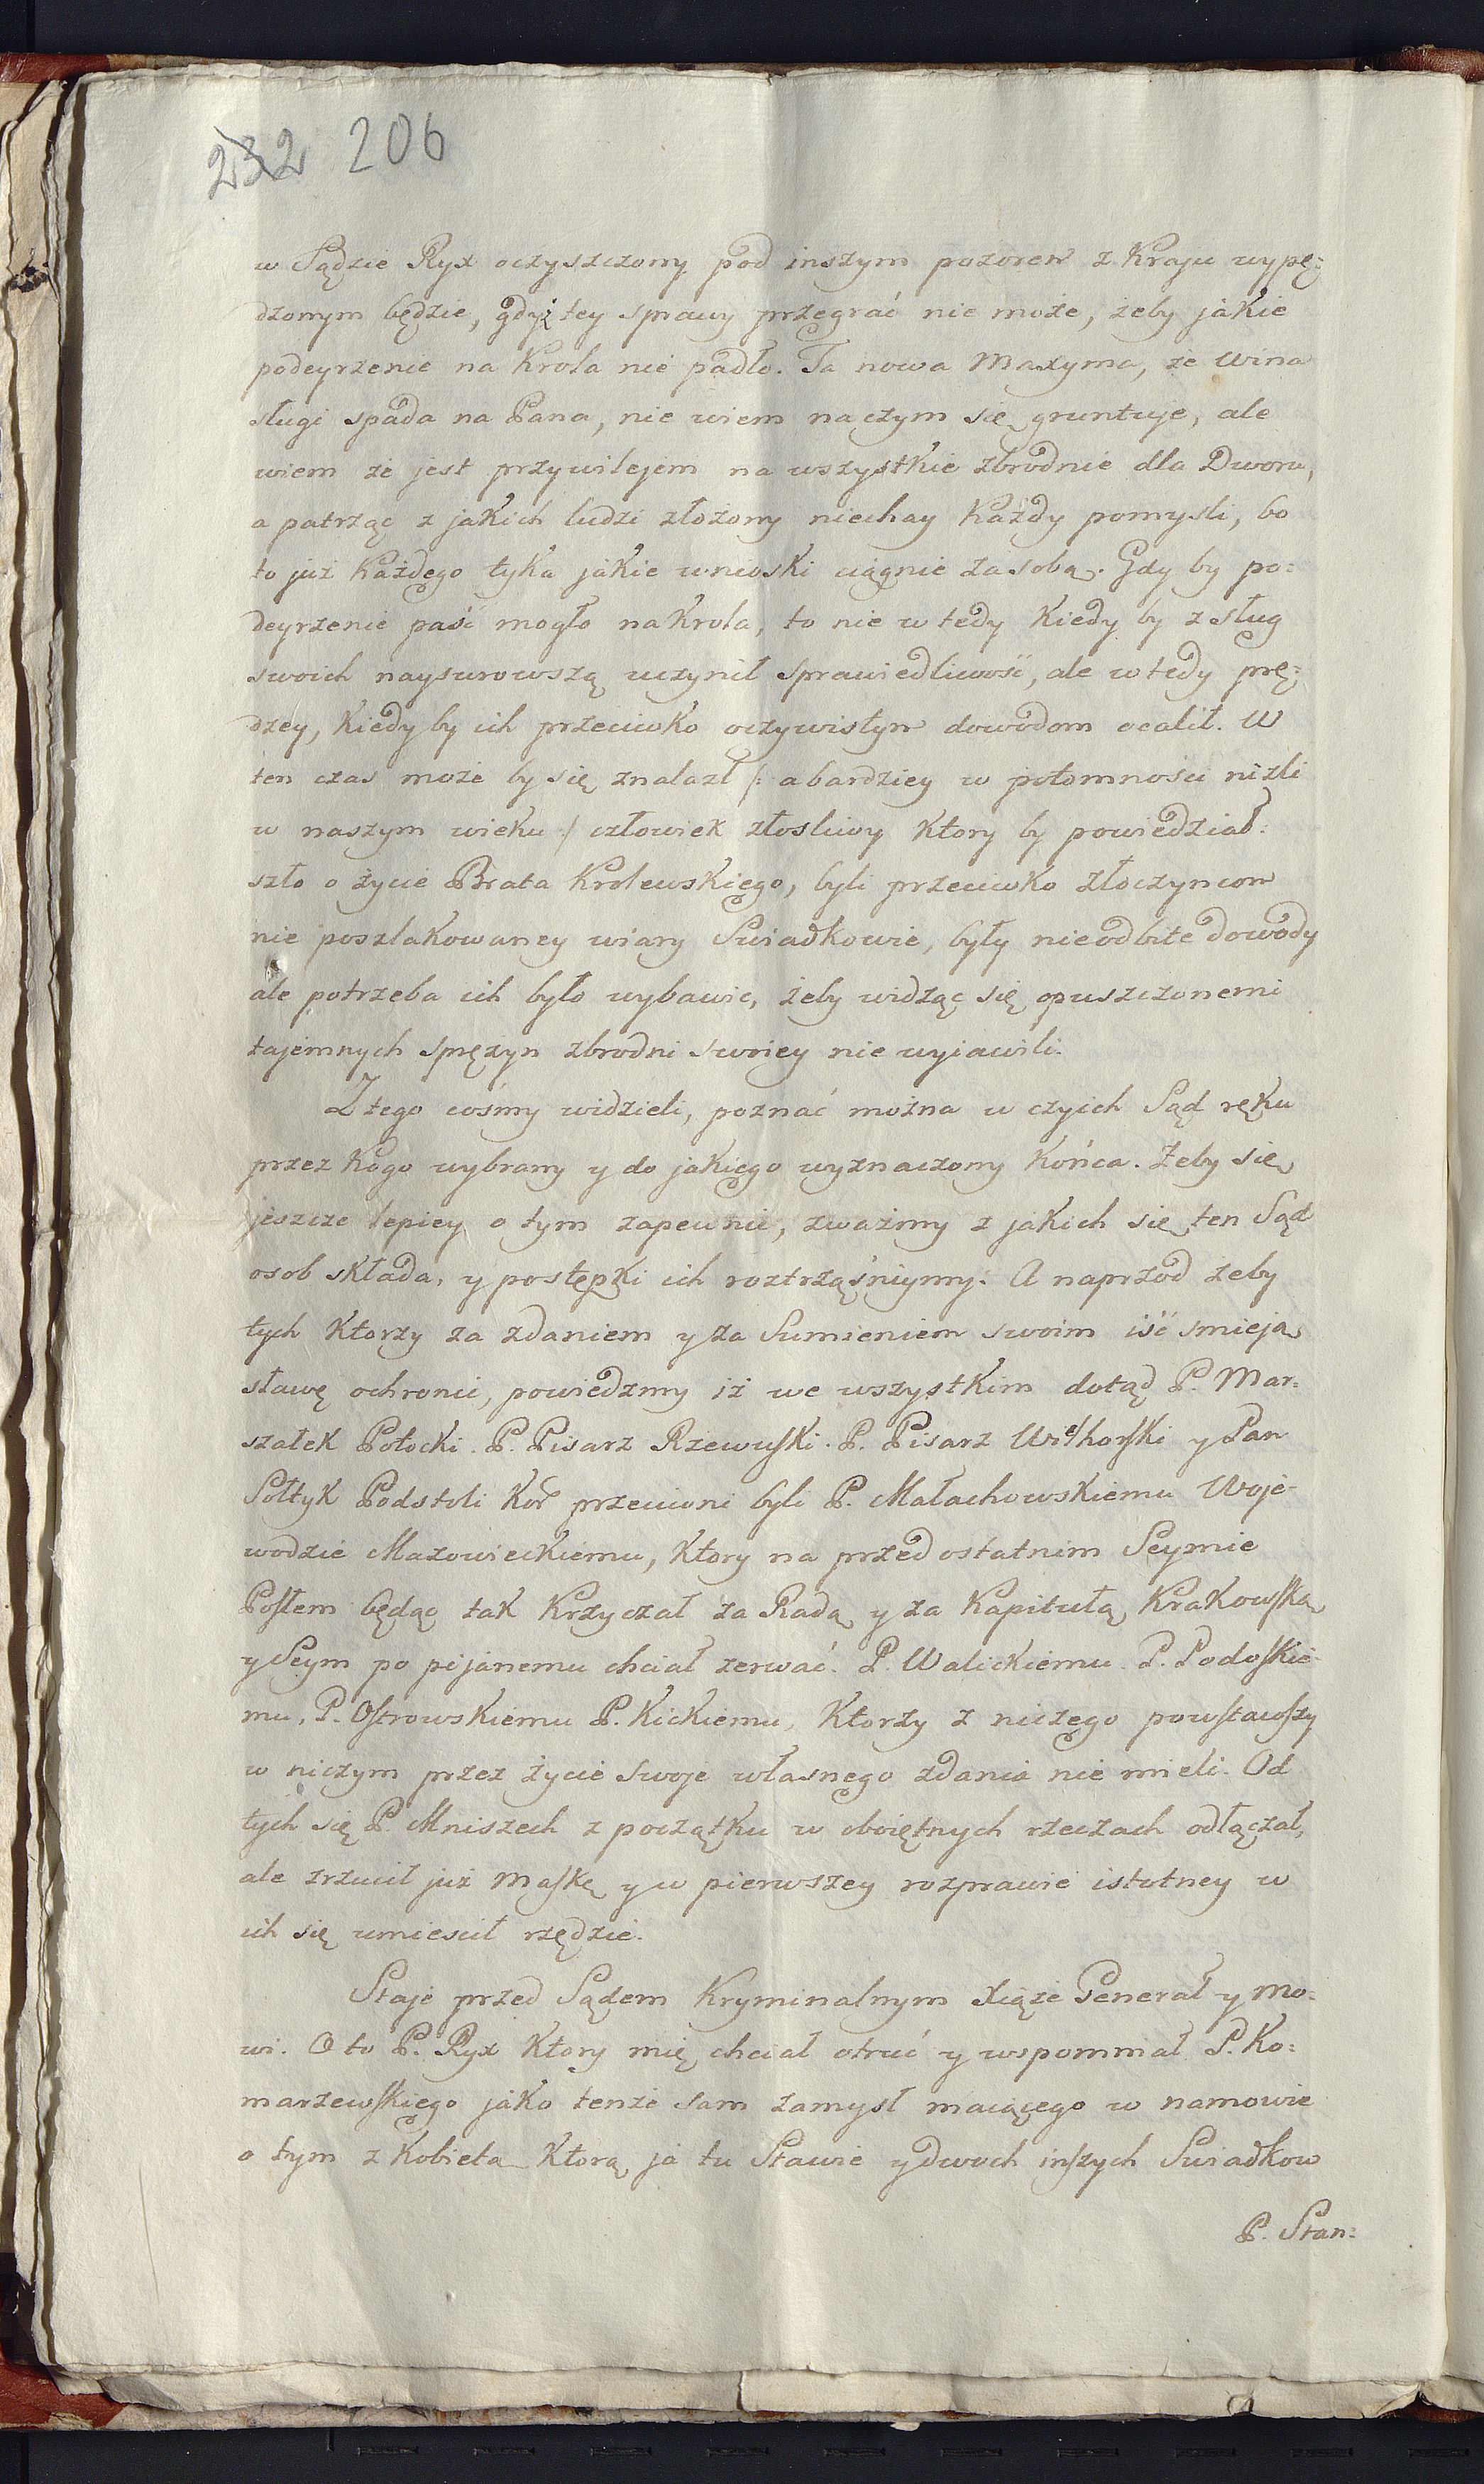 232 206
w Sądzie Ryx oczyszczony pod inszym pozorem z Kraju wypę:
dzonym będzie, gdyż tey sprawy przegrać nie może, żeby jakie
podeyrzenie na Krola nie padło. Ta nowa Maxyma, że wina
sługi spada na Pana, nie wiem naczym się gruntuje, ale
wiem że jest przywilejem na wszystkie zbrodnie dla Dworu,
a patrząc z jakich ludzi złożony niechay każdy pomysli, bo
to już każdego tyka jakie wnioski ciągnie za sobą. Gdy by po:
deyrzenie paść mogło na Krola, to nie w tedy kiedy by z sług
swoich naysurowszą uczynił sprawiedliwość, ale w tedy prę:
dzey, kiedy by ich przeciwko oczywistym dowodom ocalił. W
ten czas może by się znalazł /: a bardziey w potomności niżli
w naszym wieku :/ człowiek złosliwy ktory by powiedział:
szło o życie Brata Krolewskiego, byli przeciwko złoczyncom
nie poszlakowaney wiary Swiadkowie, były nieodbite dowody
ale potrzeba ich było wybawic, żeby widząc się opuszczonemi
tajemnych sprężyn zbrodni swoiey nie wyiawili.
Z tego cośmy widzieli, poznać można w czyich Sąd ręku
przez kogo wybrany y do jakiego wyznaczony końca. Zeby się
jeszcze lepiey o tym zapewnić, zważmy z jakich się ten Sąd
osob składa, y postępki ich roztrząśniymy. A naprzod żeby
tych ktorzy za zdaniem y za Sumieniem swoim iść smieją
sławę ochronić, powiedzmy iż we wszystkim dotąd P. Mar:
szałek Potocki. P. Pisarz Rzewuski. P. Pisarz Wielhorski y Pan
Sołtyk Podstoli Kor przeciwni byli P. Małachowskiemu Woje-
wodzie Mazowieckiemu, ktory na przed ostatnim Seymie
Posłem będąc tak krzyczał za Radą y za Kapitułą Krakowską
y Seym po pijanemu chciał zerwać. P. Walickiemu. P. Podoskie-
mu, P. Ostrowskiemu P. Kickiemu, ktorzy z niczego powstawszy
w niczym przez życie swoje własnego zdania nie mieli. Od
tych się P. Mniszech z początku w oboiętnych rzeczach odłączał,
ale zrzucił już Maskę y w pierwszey rozprawie istotney w
ich się umiescił rzędzie.
Staje przed Sądem Kryminalnym Xiąże Generał y mo:
wi. O to P. Ryx ktory mię chciał otruć y wspomniał P. Ko:
marzewskiego jako tenże sam zamysł maiącego w namowie
o tym z kobieta ktorą ja tu Stawie y dwoch inszych Swiadkow
P. Stan: